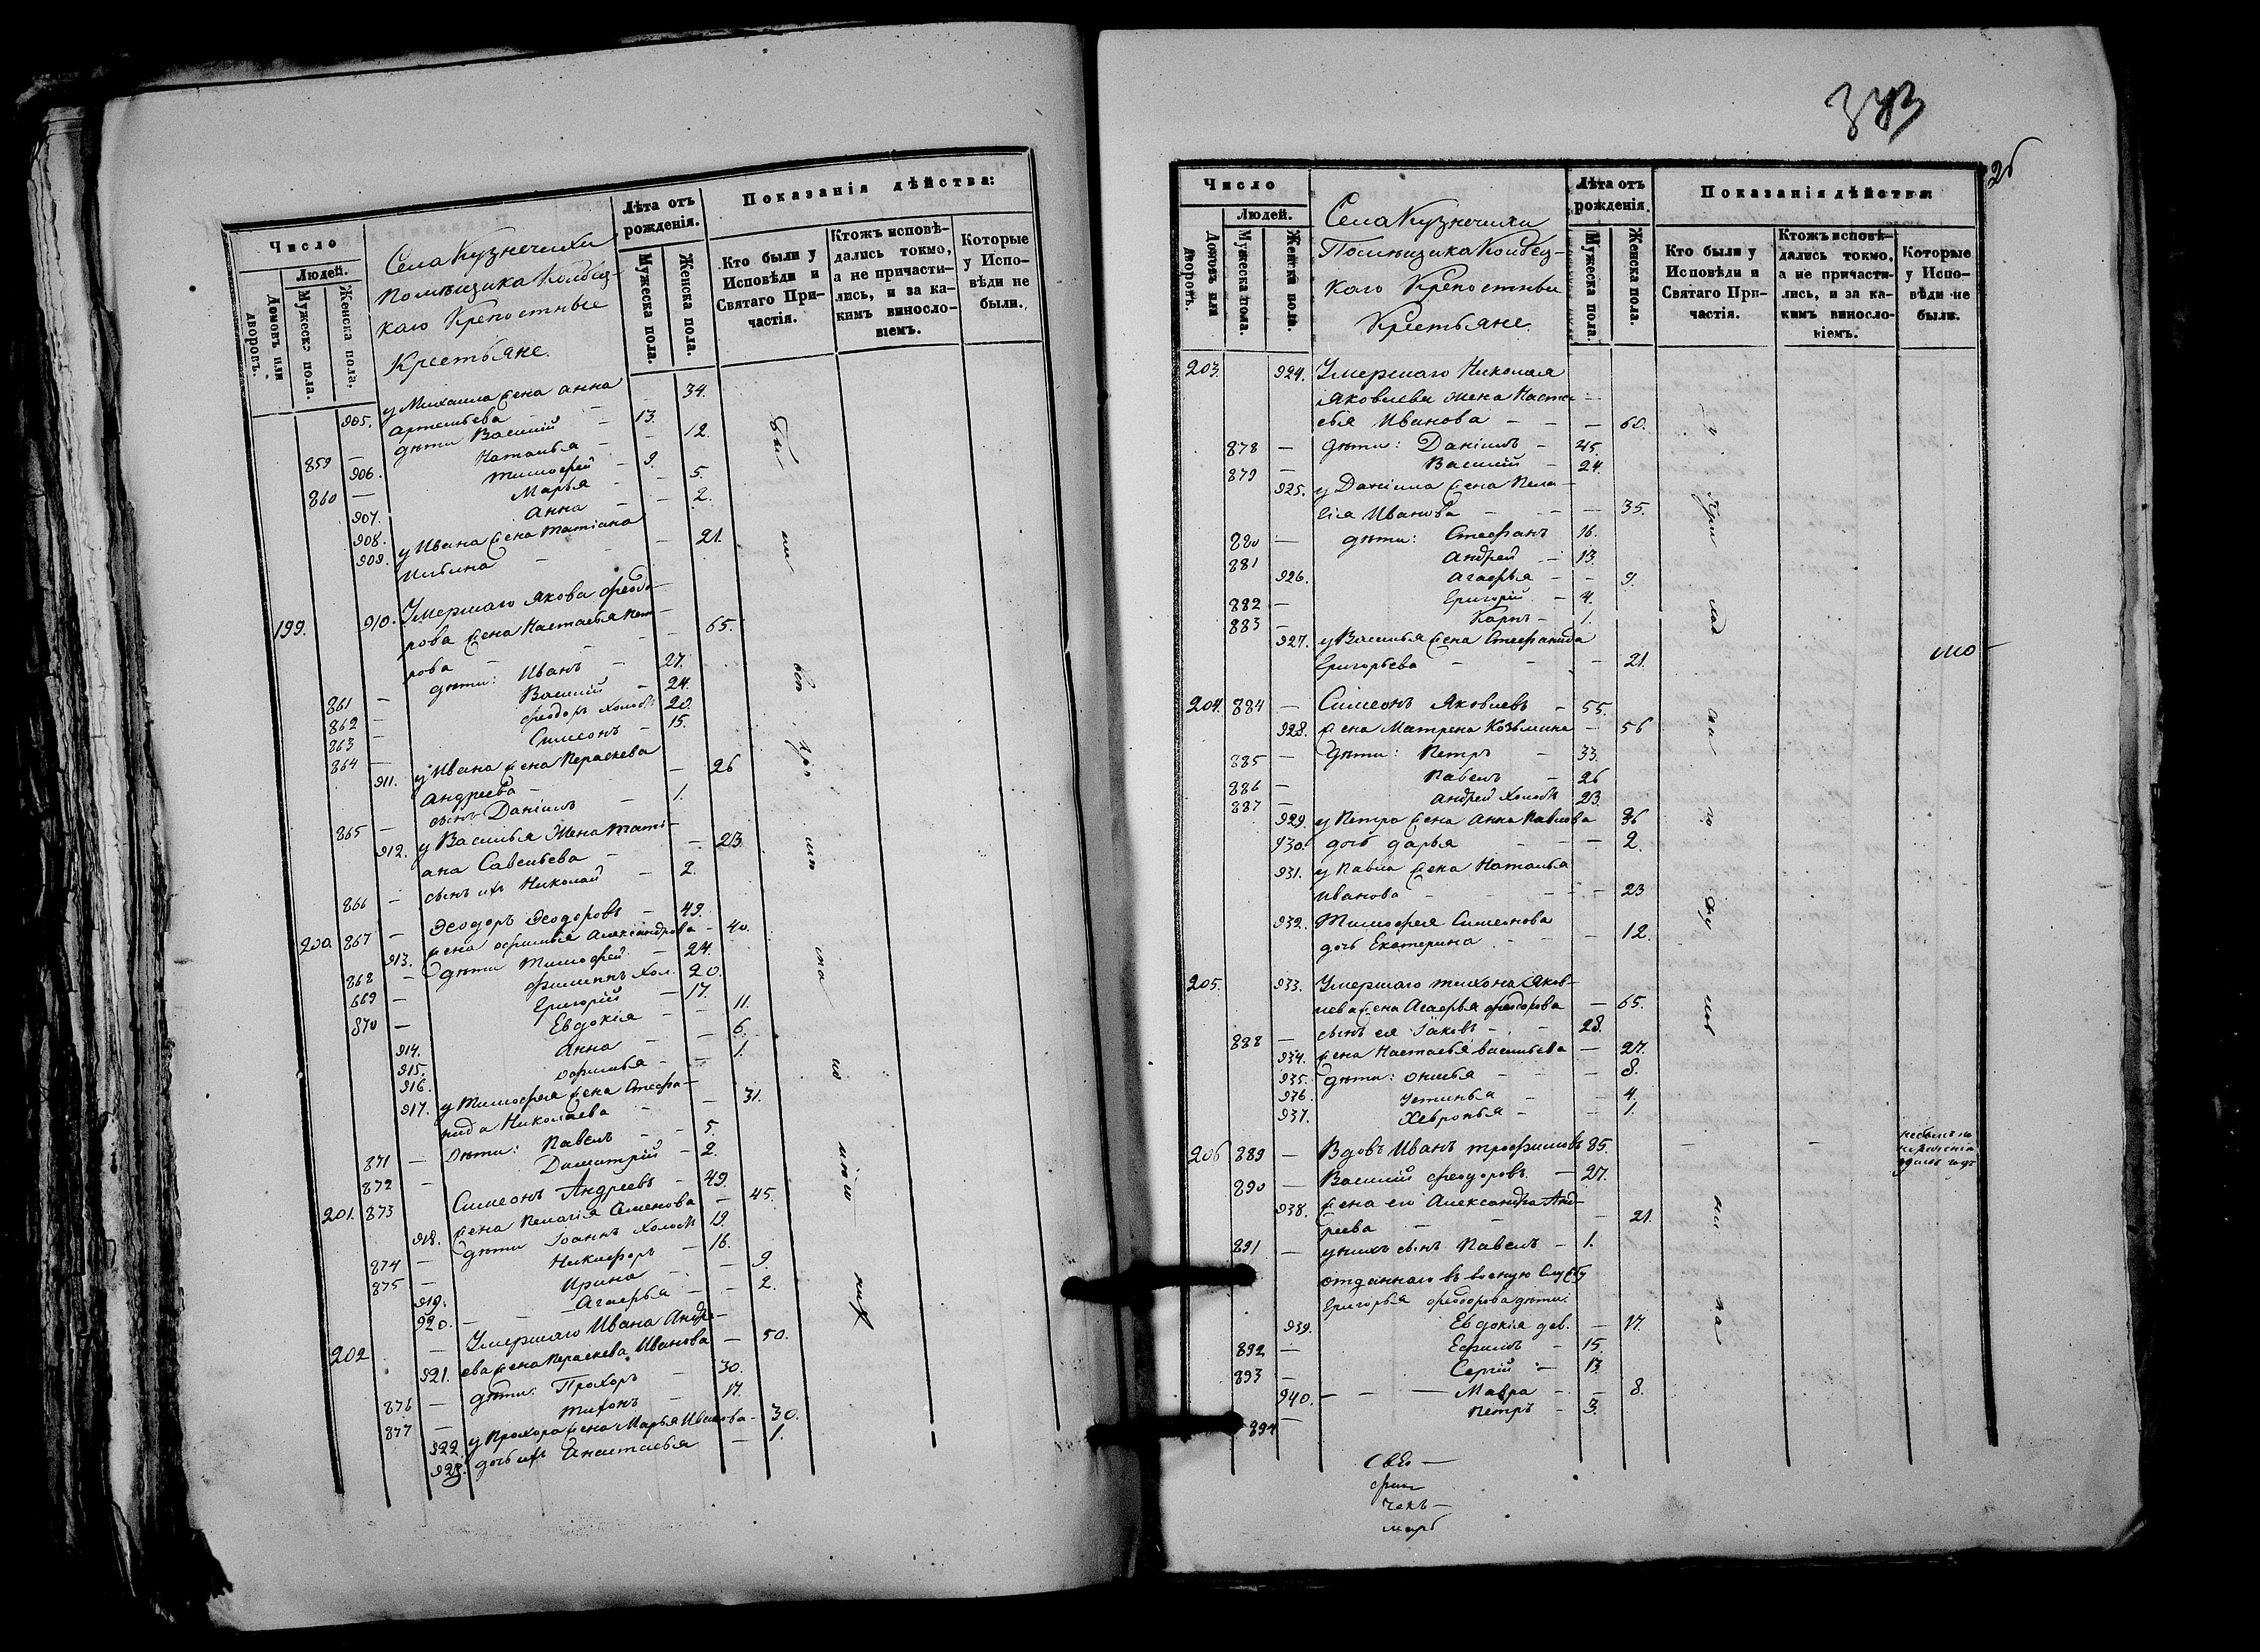 Число
Людей.
Домовъ или дворовъ.
Мужеска пола.
Женска пола.
Села Кузнечихи
Помѣщика
каго Крепостные
Крестьяне.
Лѣта отъ рожденія.
Мужеска пола.
Женска пола.
Показанія дѣйства:
Кто были у Исповѣди и Святаго Причастія.
Ктожъ исповѣдались токмо, а не причастились, и за какимъ винословіемъ.
Которые у Исповѣди не были.
905. у Михаила жена Анна 34.
Артемьева
859 — дѣти Василій — 13.
906. Наталья — — 12.
860 — Тимофей — 9.
907. Марья — — 5.
908. Анна — — 2.
909. у Ивана жена Татіана
— 21.
199. 910. Умершаго Якова Феодо-
рова жена Настасья Пет-
рова — — — 65.
861 — дѣти: Иванъ — 27.
862 — Василій — 24.
863 — Феодоръ холостъ 20.
864 — Симеонъ — 15.
911. у Ивана жена Параскева
Андреева — — 26
865 — сынъ Даніилъ — 1.
912. у Василья жена Тати-
ана Савельева — — 23.
866 — сынъ ихъ Николай — 2.
200. 867 — Феодоръ Феодоровъ — 49.
913. жена Афимья Александрова — 40.
868 — дѣти Тимофей — 24.
869 — Филиппъ хол. 20.
870 — Григорій — 17.
914. Евдокія — — 11.
915. Анна — — 6.
916. Афимья — — 1.
917. у Тимофея жена Стефа-
нида Николаева — — 31.
871 — Дѣти: Павелъ — 5.
872 — Димитрій — 2.
201. 873 Симеонъ Андреевъ — 49.
918. жена Пелагія Семенова — 45.
874 — дѣти Іоаннъ холост 19.
875 — Никифоръ — 16.
919. Ирина — — 9.
920. — — Агафья — — 2.
202 — Умершаго Ивана Андре-
921. ева жена Параскева Иванова — 50.
876 — дѣти: Прохоръ — 30.
877 — Тихонъ — 17.
922. у Прохора жена Марья Иванова — 30.
923. дочь ихъ Анастасья — 1.
373
26
Число
Людей.
Домовъ или дворовъ.
Мужеска пола.
Женска пола.
Села Кузнечихи
Помѣщика
каго Крепостные
Крестьяне.
Лѣта отъ рожденія.
Мужеска пола.
Женска пола.
Показанія дѣйства:
Кто были у Исповѣди и Святаго Причастія.
Ктожъ исповѣдались токмо, а не причастились, и за какимъ винословіемъ.
Которые у Исповѣди не были.
203. 924. Умершаго Николая
Яковлева жена Наста-
сья Иванова — — — 60.
878 — дѣти: Даніилъ — 45.
879 — Василій — 24.
925. у Даніила жена Пела-
гія Иванова — — — 35.
880 — дѣти: Стефанъ 16.
881 Андрей — 13.
926. Агафья — — 9.
882 — Григорій — 4.
883 — Карпъ — 1.
927. у Василья жена Стефанида
Григорьева — — — 21.
204. 884 — Симеонъ Яковлевъ — 55.
928. жена Матрена Козьмина — 56
885 — Дѣти: Петръ — 33.
886 — Павелъ — 26
887 — Андрей холостъ 23.
929. у Петра жена Анна Павлова 36
930. дочь Дарья — — — 2.
931. у Павла жена Наталья
Иванова — — — 23
932. Тимофея Симеонова
дочь Екатерина — — — 12.
205. 933. Умершаго Тихона Яков-
лева жена Агафья Феодорова — 65.
888 — сынъ ея Іаковъ — 28.
934. жена Настасья Васильева — 27.
935. дѣти: — — 8.
936. Устинья — — 4.
937. Хевронья — — 1.
206 889 — Вдовъ Иванъ Трофимовъ 85. — —
890 — Василій Феодоровъ — 27.
938. жена его Александра Анд-
реева — — — 21.
891 — у нихъ сынъ Павелъ — 1.
отданнаго въ военную службу
Григорья Феодорова дѣти:
939. Евдокія дев. — 17.
892 — Ефимъ — 15.
893 — Сергій — 13.
940. — — — Мавра — — 8.
894 — Петръ — 3.